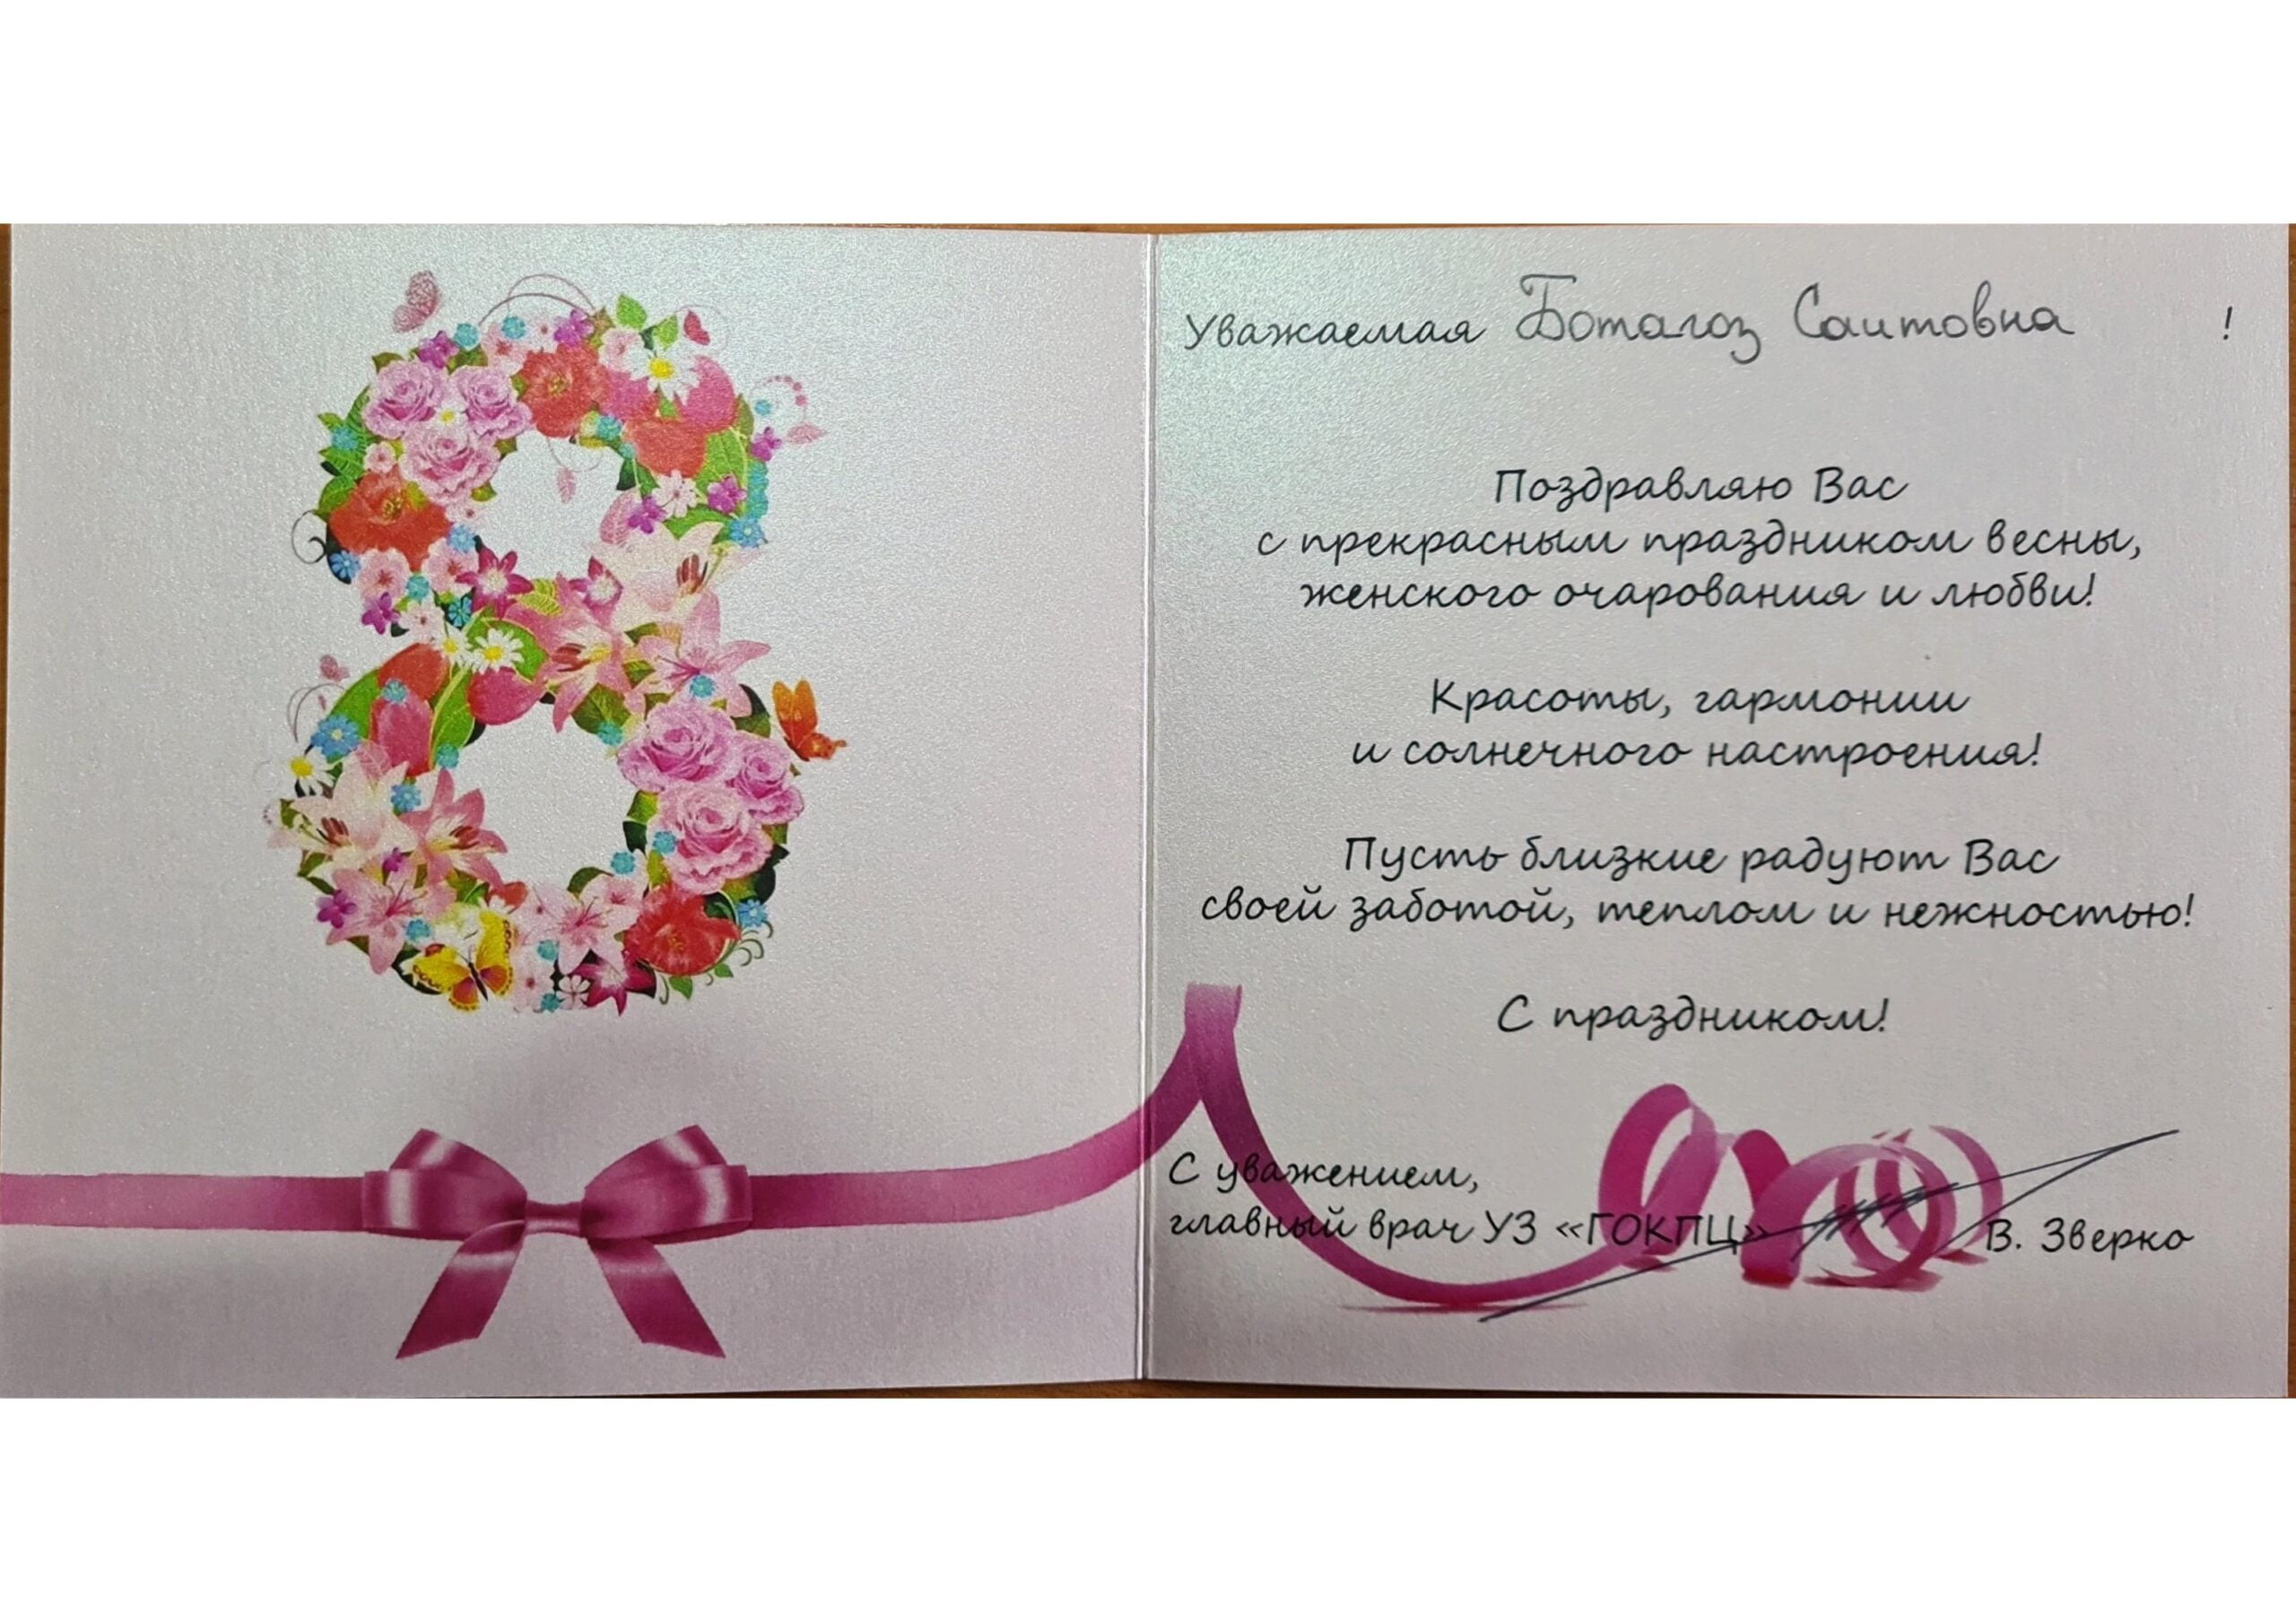 8
Уважаемая Ботагоз Саитовна !
Поздравляю Вас
с прекрасным праздником весны,
женского очарования и любви!
Красоты, гармонии
и солнечного настроения!
Пусть близкие радуют Вас
своей заботой, теплом и нежностью!
С праздником!
С уважением,
главный врач УЗ «ГОКПЦ» В. Зверко